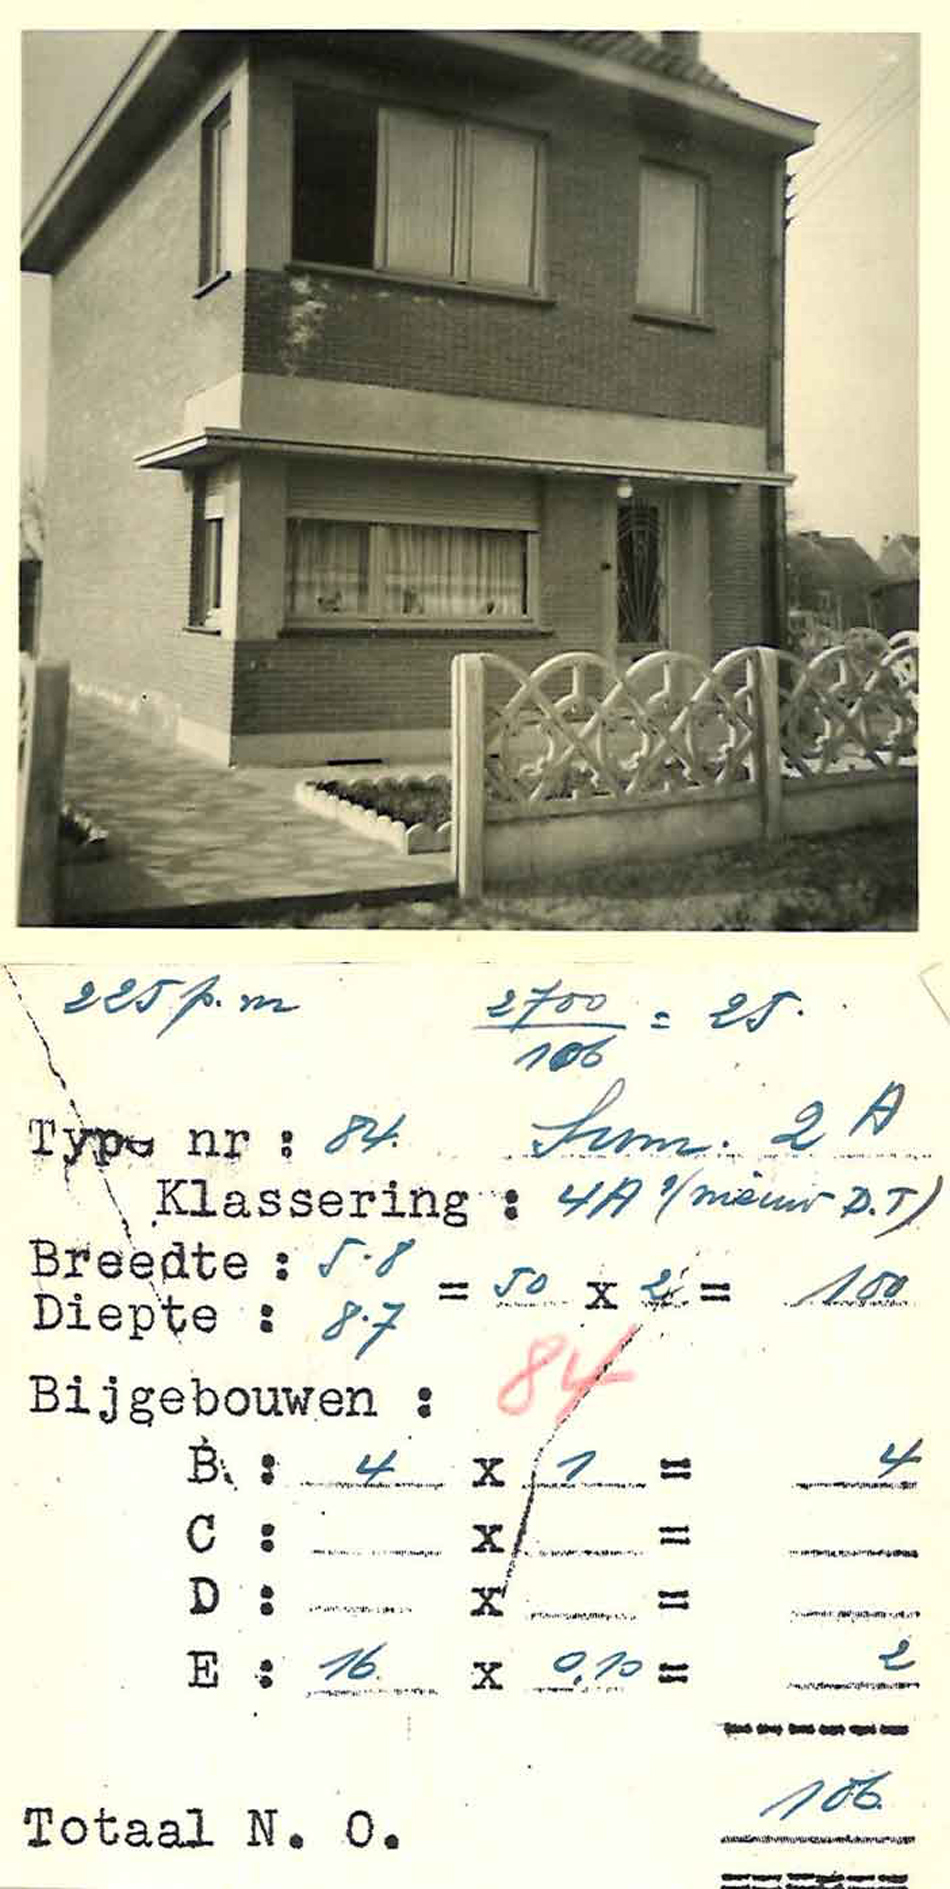 225 p. m 2700/106 = 25.
Type nr : 84. 2 A
Klassering : 4A (nieuw D.T)
Breedte : 5.8
= 50 x 2 = 100
Diepte : 8.7
84
Bijgebouwen :
B. : 4 x 1 = 4
C : x =
D : x =
E : 16 x 0,10 = 2
Totaal N. O. 106